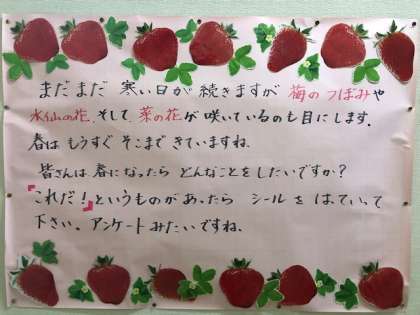 まだまだ 寒い日が 続きますが 梅のつぼみや
水仙の花、そして、菜の花が 咲いているのも目にします。
春は もうすぐ そこまで きていますね。
皆さんは 春になったら どんなことを したいですか?
「これだ!」というものがあったら シールを はっていって
下さい。アンケートみたいですね。